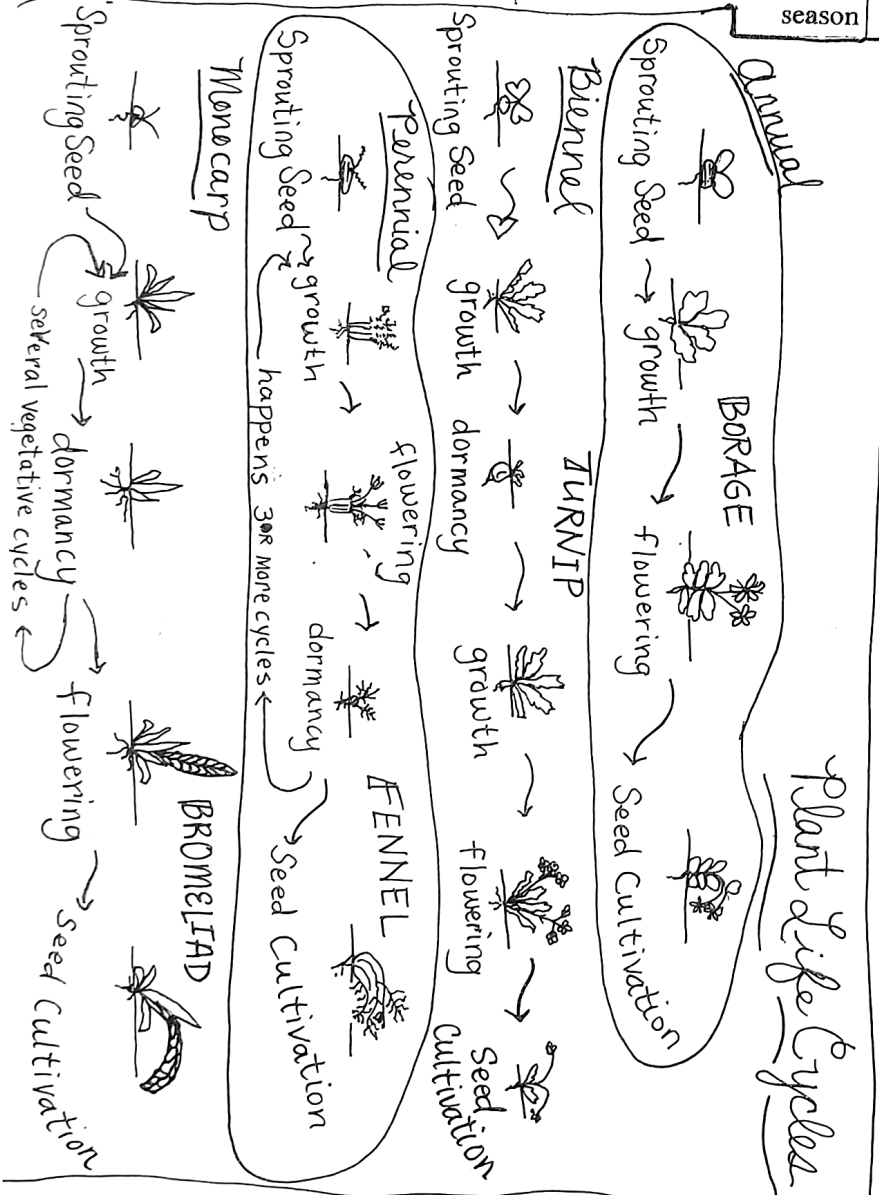 season
Plant Life Cycles
Annual
BORAGE
Sprouting Seed
growth
flowering
Seed Cultivation
Biennel
TURNIP
Sprouting Seed
growth
dormancy
growth
flowering
Seed
Cultivation
Perennial
FENNEL
flowering
Sprouting Seed
growth
dormancy
Seed Cultivation
happens 3 OR More cycles
Monocarp
BROMELIAD
Sprouting Seed
growth
dormancy
flowering
Seed Cultivation
several vegetative cycles